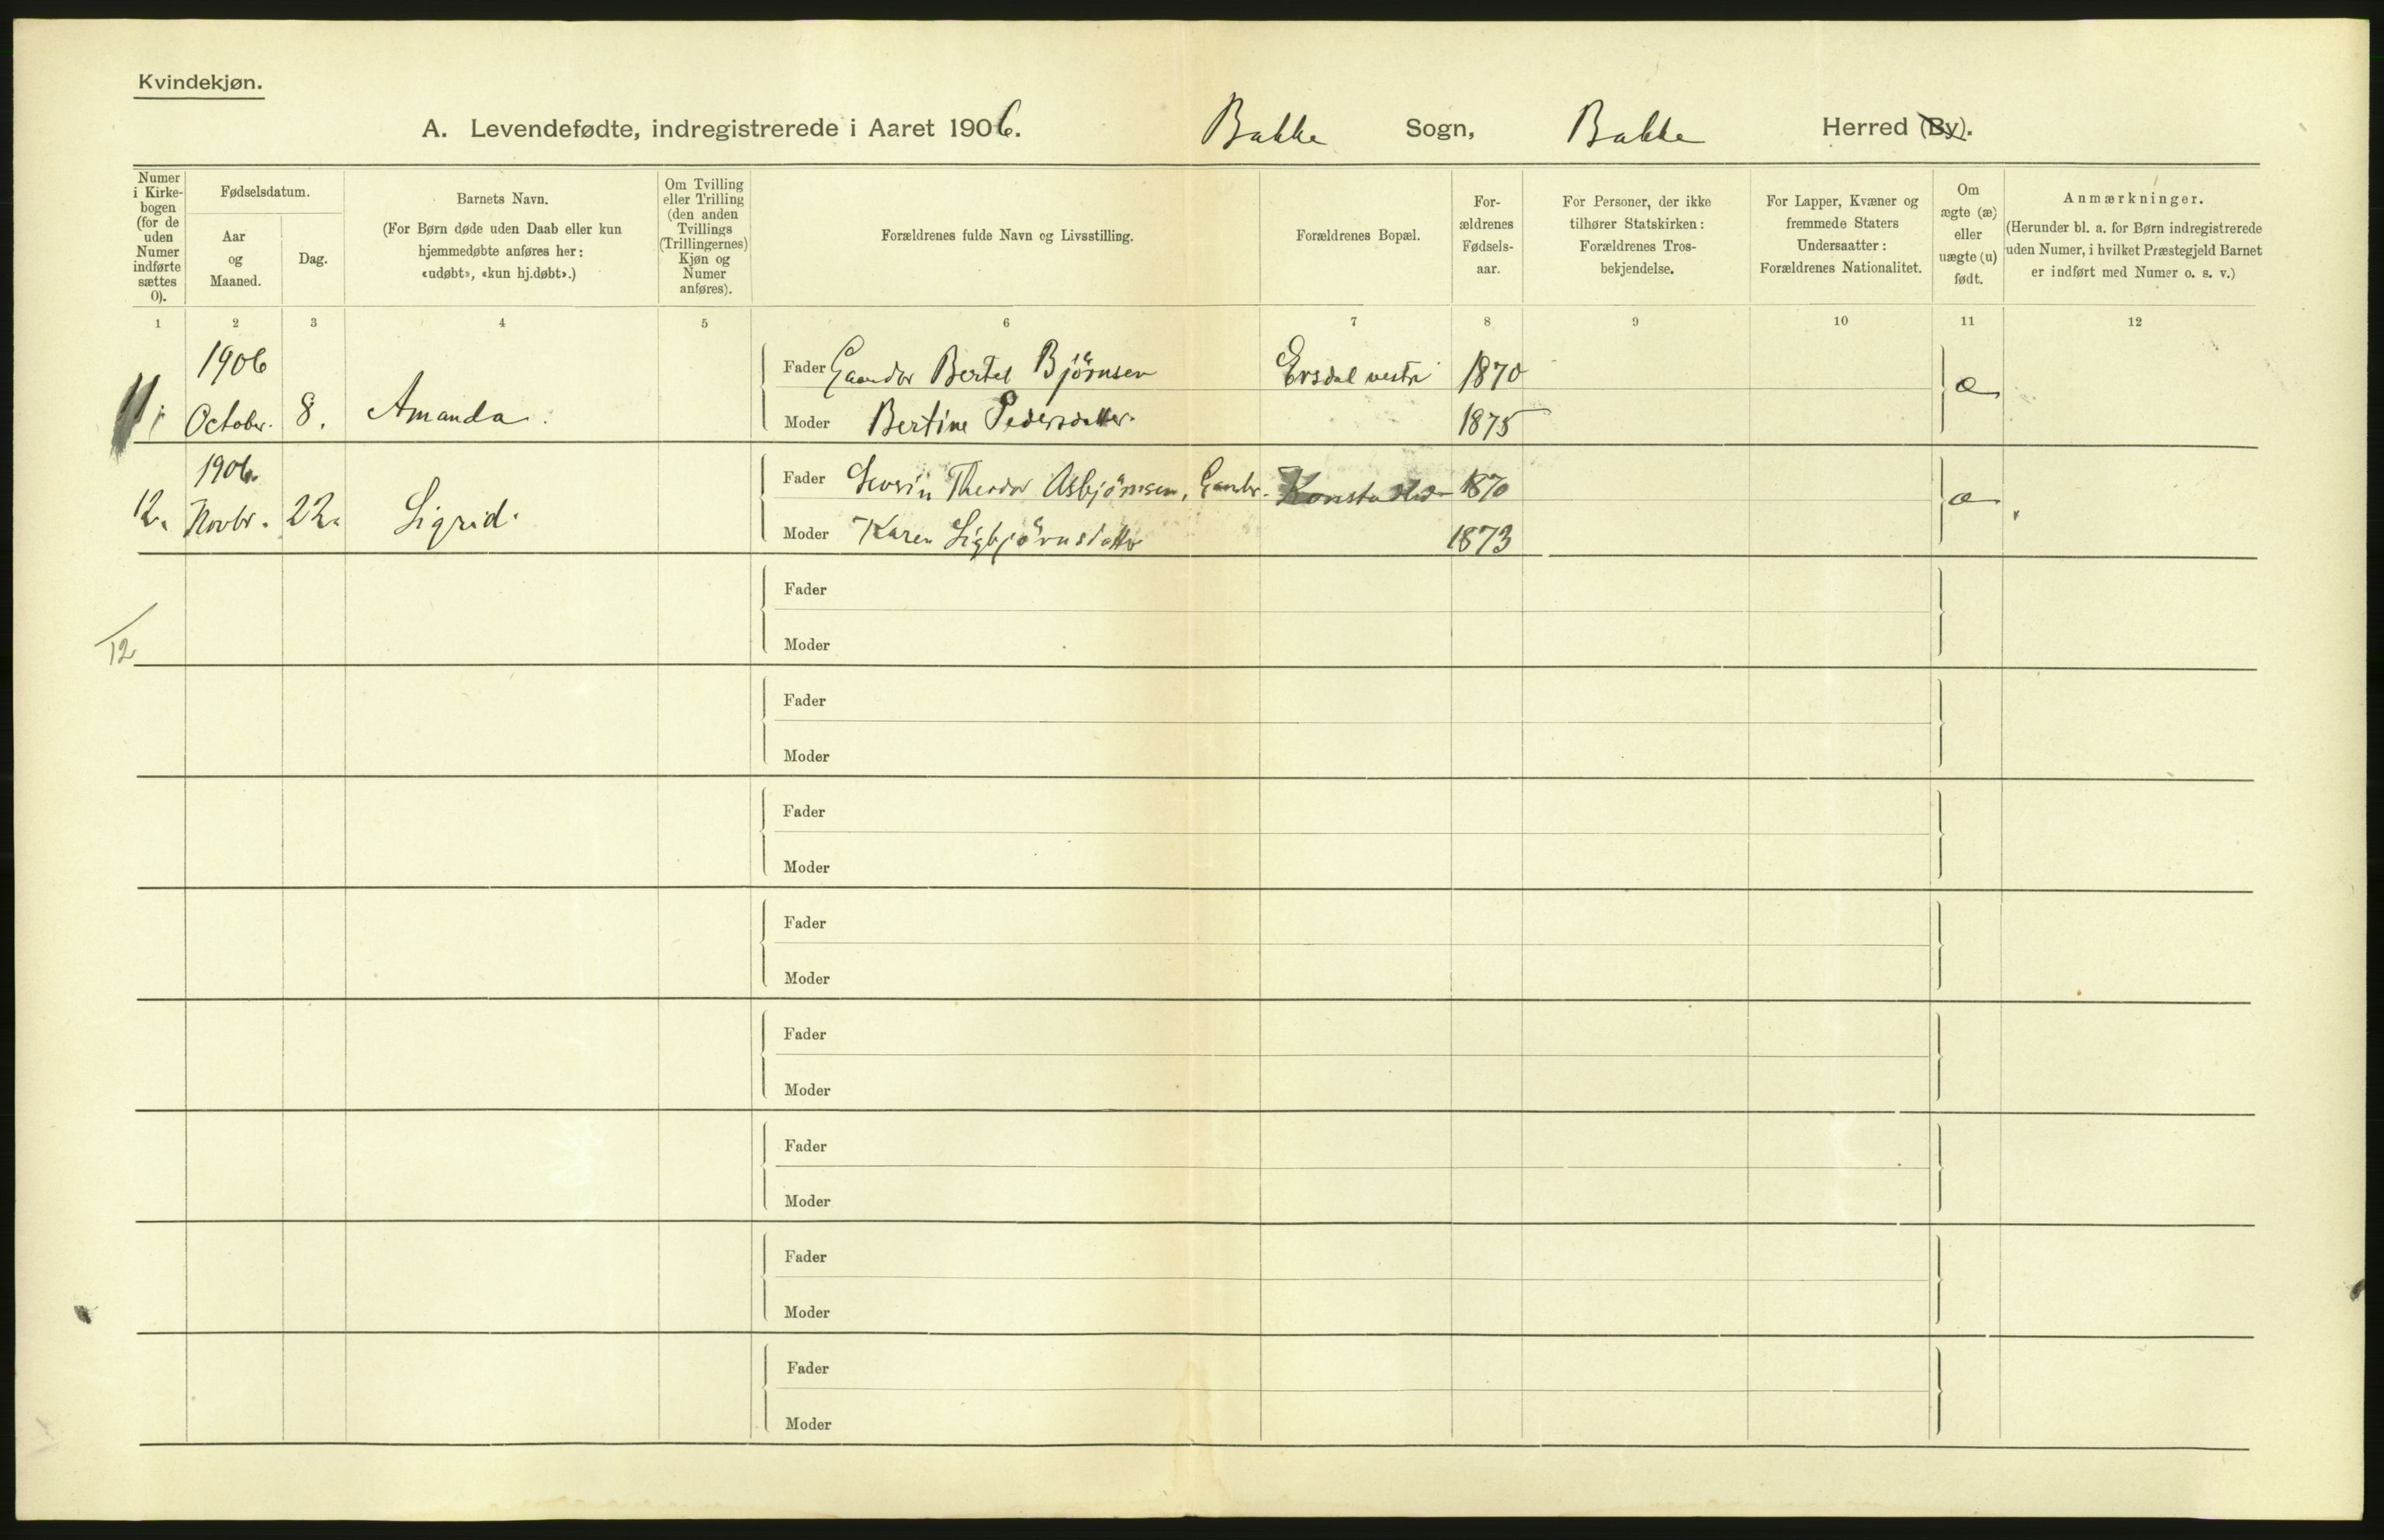 Kvindekjøn.
A. Levendefødte, indregistrerede i Aaret 1906. Bakke Sogn, Bakke Herred (By).
Numer i Kirkebogen (for de uden Numer indførte sættes 0).
Fødselsdatum.
Aar og Maaned.
Dag.
Barnets Navn.
(For Børn døde uden Daab eller kun hjemmedøbte anføres her: «udøbt», «kun hj.døbt».)
Om Tvilling eller Trilling (den anden Tvillings (Trillingernes) Kjøn og Numer anføres).
Forældrenes fulde Navn og Livsstilling.
Forældrenes Bopæl.
Forældrenes Fødselsaar.
For Personer, der ikke tilhører Statskirken: Forældrenes Trosbekjendelse.
For Lapper, Kvæner og fremmede Staters Undersaatter: Forældrenes Nationalitet.
Om ægte (æ) eller uægte (u) født.
Anmærkninger.
(Herunder bl. a. for Børn indregistrerede uden Numer, i hvilket Præstegjeld Barnet er indført med Numer o. s. v.)
1 2 3 4 5 6 7 8 9 10 11 12
1906
Fader Gaardbr Bertel Björnsen Ersdal vestre 1870 æ
11. October. 8. Amanda.
Moder Bertine Pedersdatter. 1875
1906.
Fader Severin Theodor Asbjörnsen, Gaardbr. 1870 æ
12. Novbr. 22. Sigrid.
Moder Karen Sigbjörnsdatter 1873
Fader
12
Moder
Fader
Moder
Fader
Moder
Fader
Moder
Fader
Moder
Fader
Moder
Fader
Moder
Fader
Moder